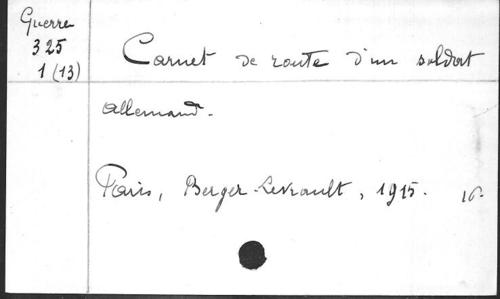 Guerre
325
1 (13)
Carnet de route d'un soldat
allemand.
Paris, Berger-Levrault, 1915. 16.